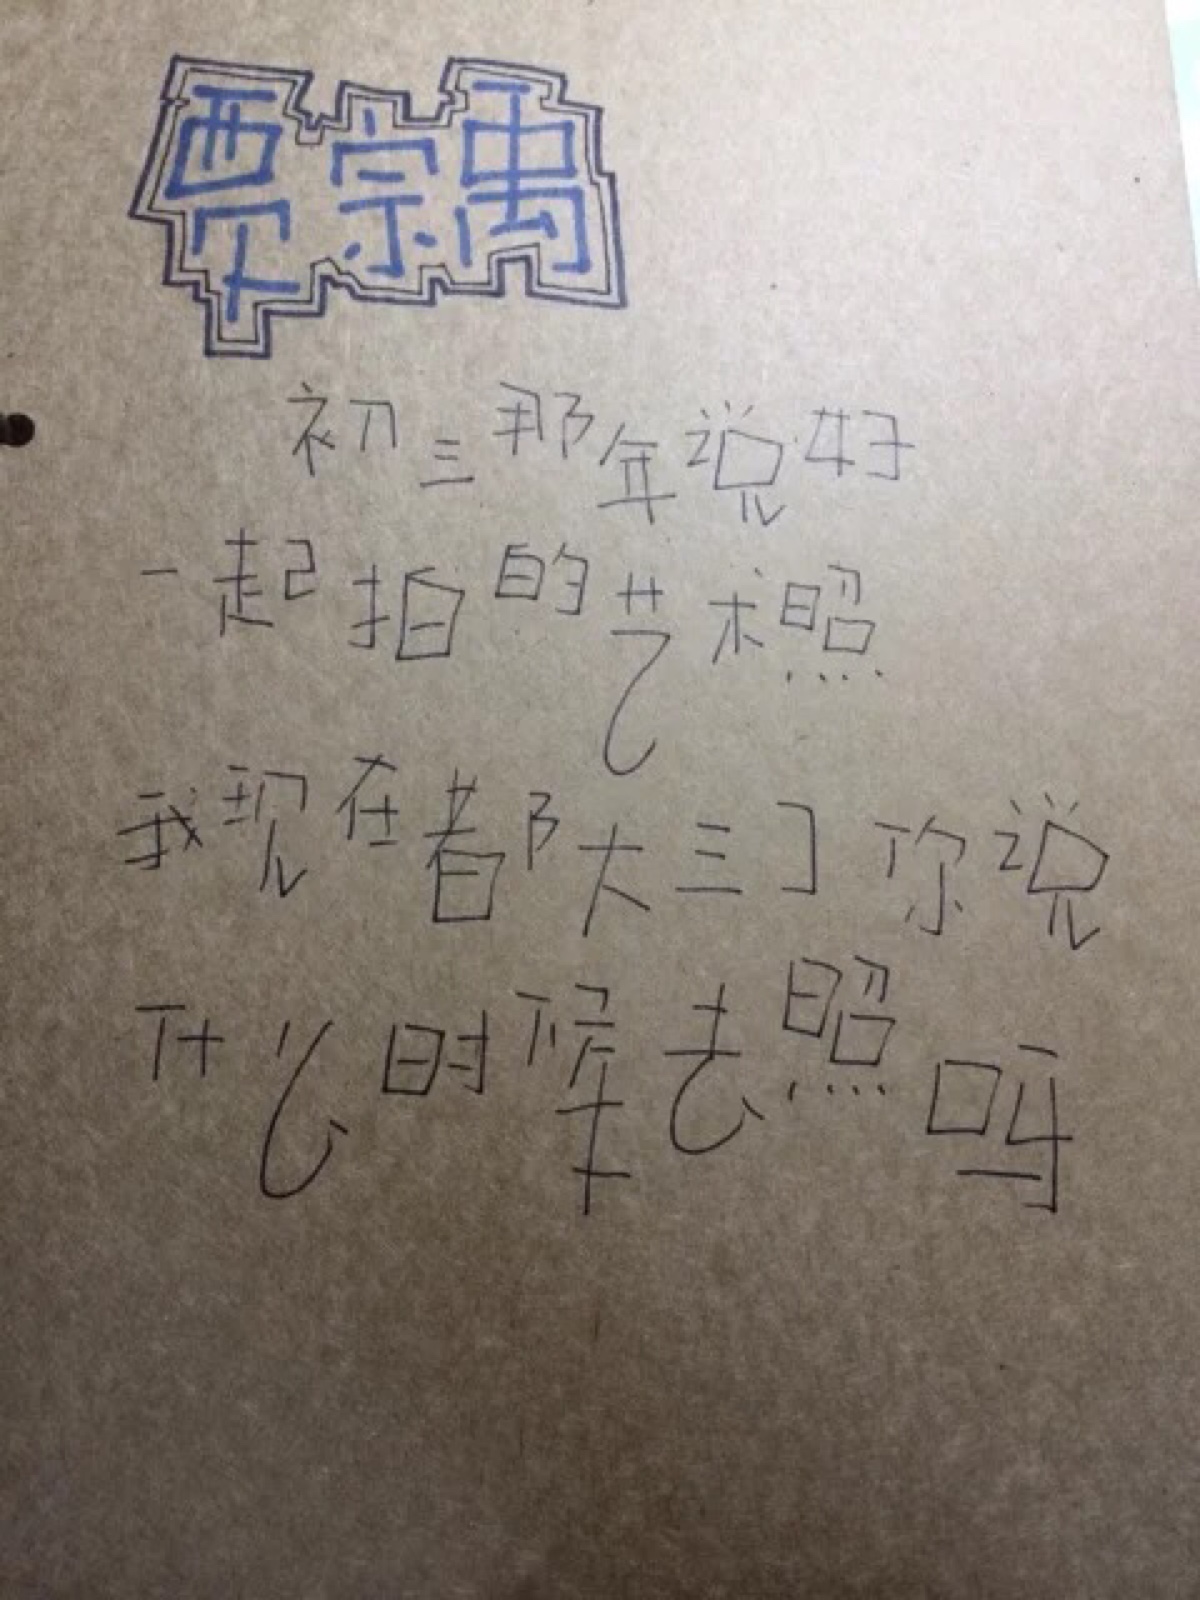 贾宗禹
初三那年说好
一起拍的艺术照
我现在都大三了你说
什么时候去照吗